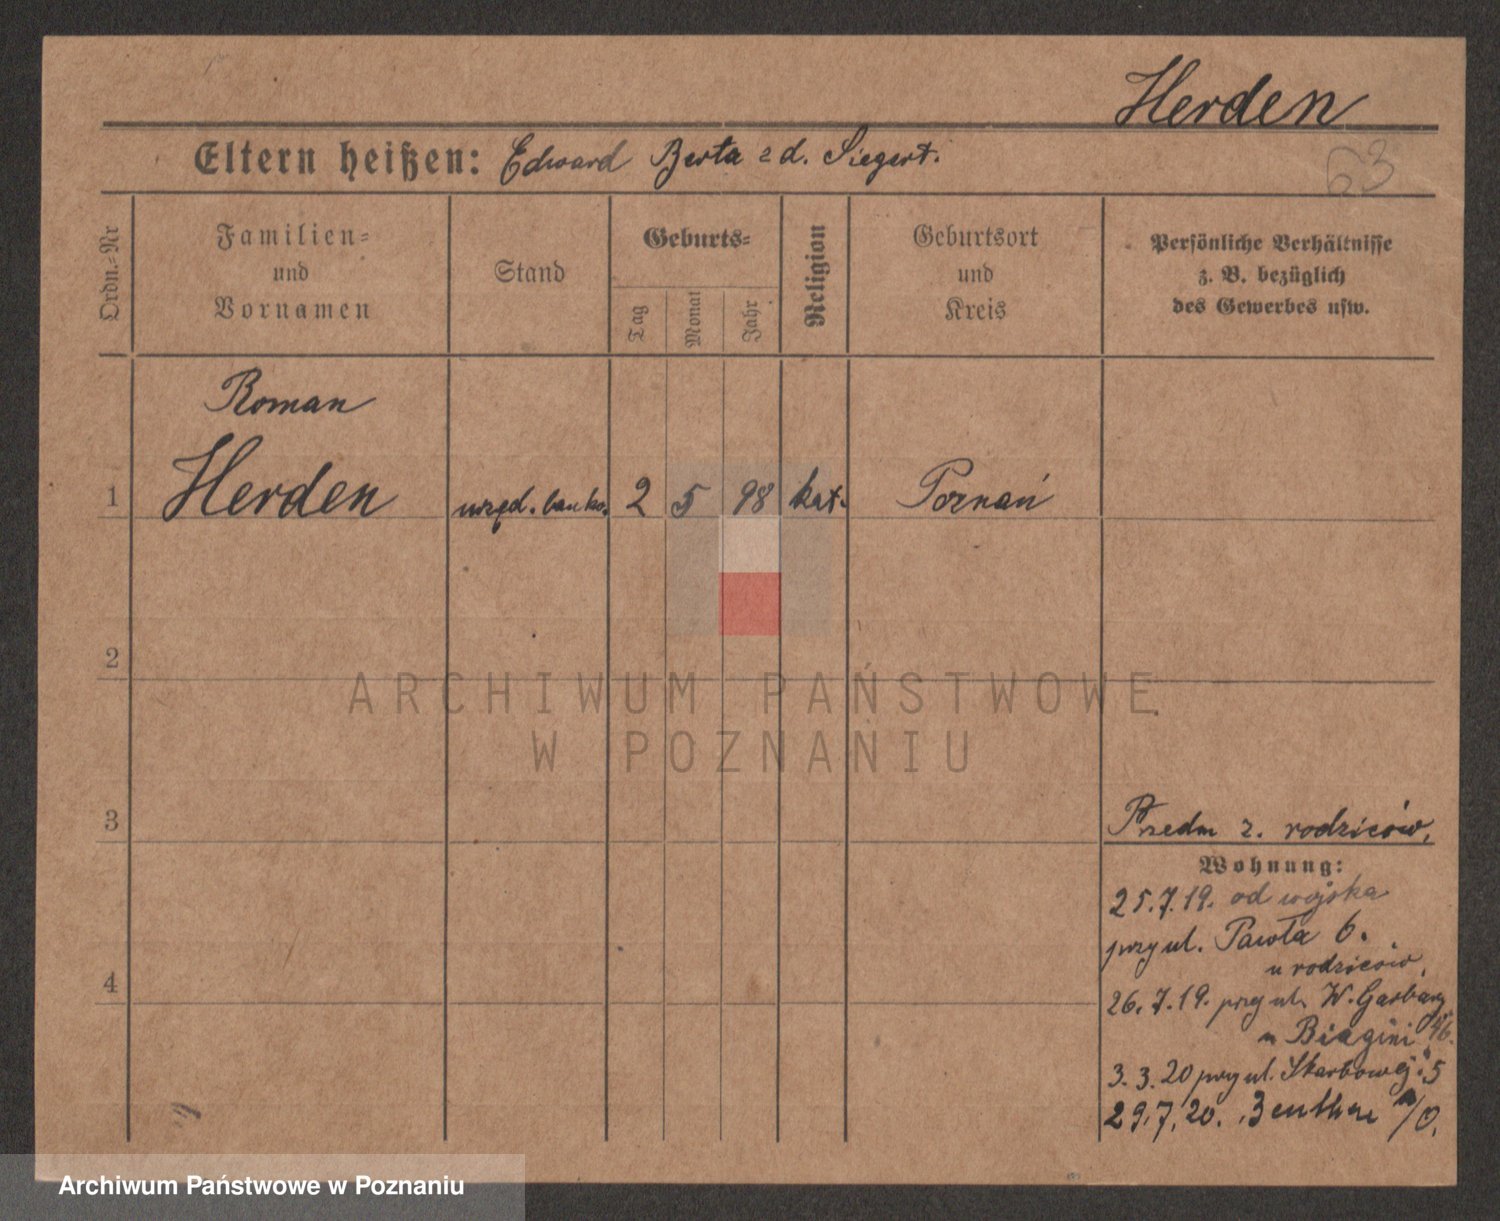 Herden
Eltern heißen: Edward Berta z d. Siegert.
63
Ordn.-Nr
Familien-
und
Vornamen
Stand
Geburts-
Tag
Monat
Jahr
Religion
Geburtsort
und
Kreis
Persönliche Verhältnisse
z. B. bezüglich
des Gewerbes usw.
Roman
1 Herden urzęd. banko. 2 5 98 kat. Poznań
2
ARCHIWUM PAŃSTWOWE
W POZNANIU
3
Przedm z. rodziców.
Wohnung:
25.7.19. od wojska
przy ul. Pawła 6.
u rodziców.
4
26.7.19. przy ul. W. Garbary
u Biagini 46.
3.3.20 przy ul. Skarbowej 5
29.7.20. Beuthen /O.
Archiwum Państwowe w Poznaniu